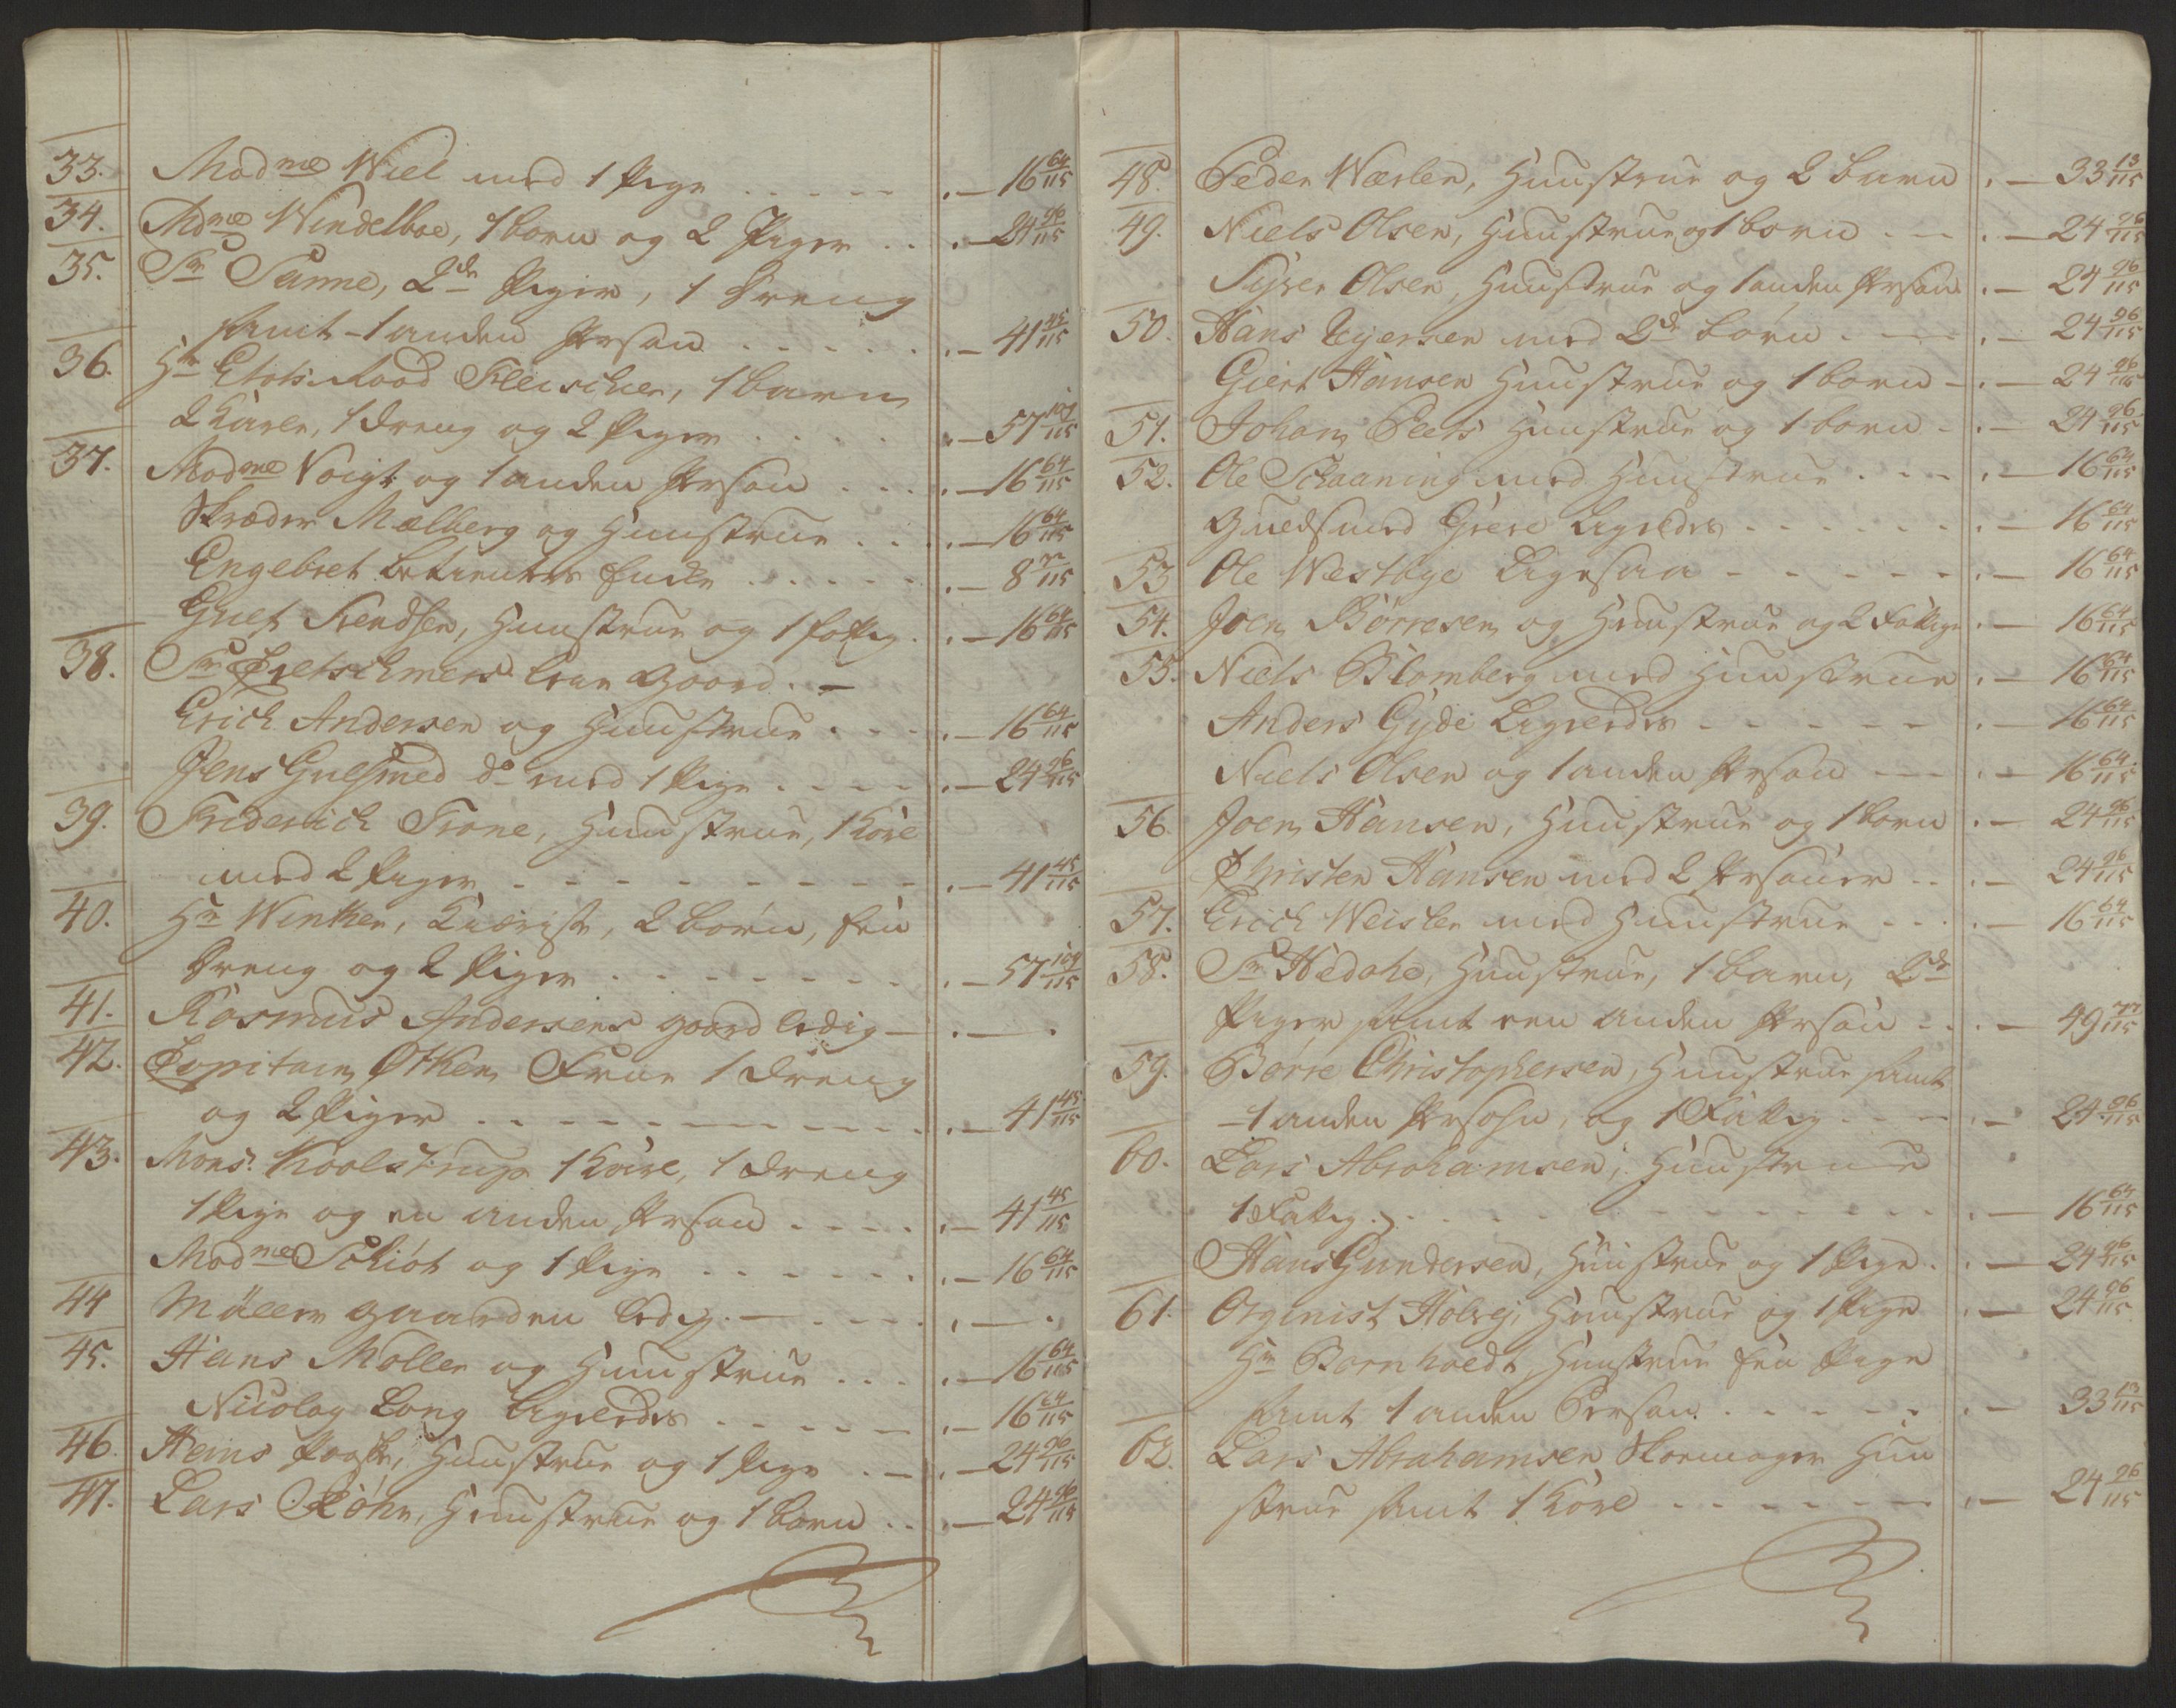 33. Mad^me Wiel med 1 Pige . . . . . . — 16 64/115
34. Md^me Windelboe, 1 barn og 2 Piger . . . — 24 96/115
35. S^r Sanne, 2^de Piger, 1 Dreng
samt 1 anden Person . . . . . . — 41 45/115
36. H^r Etats Raad Fleischer, 1 barn
2 Karle, 1 dreng og 2 Piger . . . . . — 57 109/115
37. Mad^me Voigt og 1 anden Person . . . — 16 64/115
Skræder Mælberg og Huustrue . . . — 16 64/115
Engebret Betientes Encke . . . . . — 8 32/115
Gulf Svendsen, Huustrue og 1 fattig . . — 16 64/115
38. S^r Kretschmers Gaard . —
Erich Andersen og Huustrue . . . — 16 64/115
Jens Gulsmed d^o med 1 Pige . . . . — 24 96/115
39. Friderich Trane, Huustrue, 1 Karl
med 2 Piger - - - - - - - . — 41 45/115
40. H^r Winther, Kiæriste, 2 børn, een
Dreng og 2 Piger . . . . . . . — 57 109/115
41. Rasmus Andersens gaard ledig — . — .
42. Capitain Othen Frue 1 dreng
og 2 Piger . . . . . . . . — 41 45/115
43. Mons^r Koolstrup 1 Karl, 1 dreng
1 Pige og en anden Person . . . . — 41 45/115
Mad^me Schiøt og 1 Pige . . . . . . — 16 64/115
44 Møller gaarden ledig . — . . . . — .
45. Hans Møller og Huustrue . . . — 16 64/115
Nicolay Lang Ligeledes . . . . . — 16 64/115
46. Hans Paaske, Huustrue og 1 Pige . — . — 24 96/115
47. Lars Røhr, Huustrue og 1 barn . . — 24 96/115
48. Peder Wærler, Huustrue og 2 barn . — 33 13/115
49. Niels Olsen, Huustrue og 1 barn — . — 24 96/115
Siver Olsen, Huustrue og 1 anden Person . — 24 96/115
50. Hans Ejersen med 2^de børn . — . — 24 96/115
Giert Hansen Huustrue og 1 barn - . — 24 96/115
51. Johan Peers Huustrue og 1 barn - . — 24 96/115
52. Ole Schaaning med Huustrue . . - . — 16 64/115
Guldsmed Grere Ligeledes . . . . . — 16 64/115
53 Ole Westbye Ligesaa - - - - - . — 16 64/115
54. Joen Børresen og Huustrue og 2 Fattige . — 16 64/115
55. Niels Blomberg med Huustrue . — 16 64/115
Anders Gyde Ligeledes - - - - - . — 16 64/115
Niels Olsen og 1 anden Person — . — 16 64/115
56. Joen Hansen, Huustrue og 1 barn . — 24 96/115
Christen Hansen med 2 Personer . . — 24 96/115
57. Erich Weisler med Huustrue . . . — 16 64/115
58. S^r Hedahe, Huustrue, 1 barn, 2^de
Piger samt een anden Person . . . — 49 77/115
59. Børre Christophersen, Huustrue samt
1 anden Persohn, og 1 Fattig . — . — 24 96/115
60. Lars Abrahamsen, Huustrue
1 Fattig . . . . . . . . . — 16 64/115
Hans Gundersen, Huustrue og 1 Pige . . — 24 96/115
61. Organist Holvej, Huustrue og 1 Pige . — 24 96/115
H^r Bornholdt, Huustrue een Pige
samt 1 anden Person . . . . . . — 33 13/115
62. Lars Abrahamsen Skomager Huu
strue samt 1 Karl . . . . . . . — 24 96/115